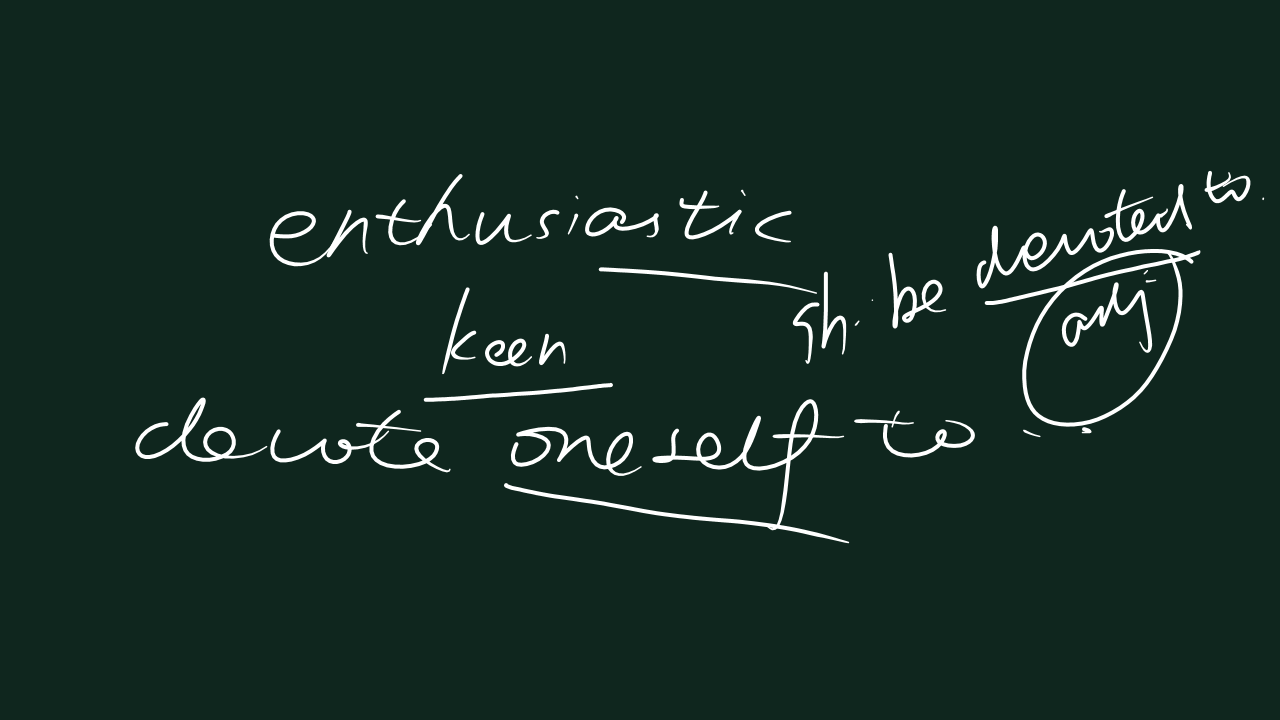 enthusiastic
keen
sh. be devoted to.
adj
devote oneself to